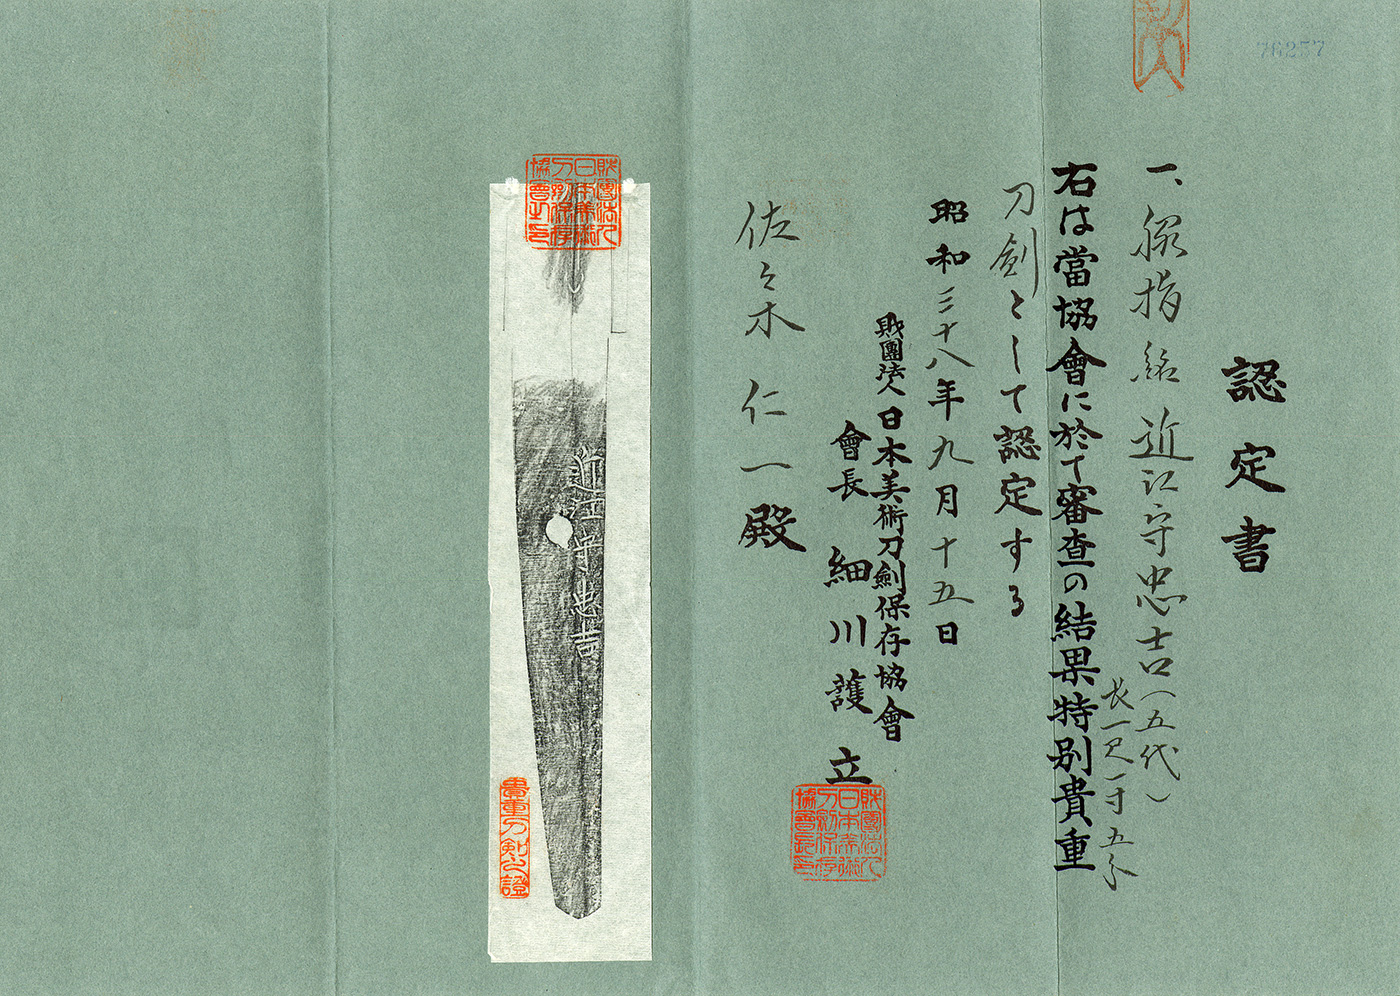 76257
認定書
一、脇指 銘 近江守忠吉(五代)
長一尺一寸五分
右は當協會に於て審査の結果特別貴重
刀劍として認定する
昭和三十八年九月十五日
財團法人日本美術刀劍保存協會
會長 細川護立
財團法人日本美術刀劍保存協會長印
佐々木仁一殿
財團法人日本美術刀劍保存協會之印
近江守忠吉
貴重刀剣之證